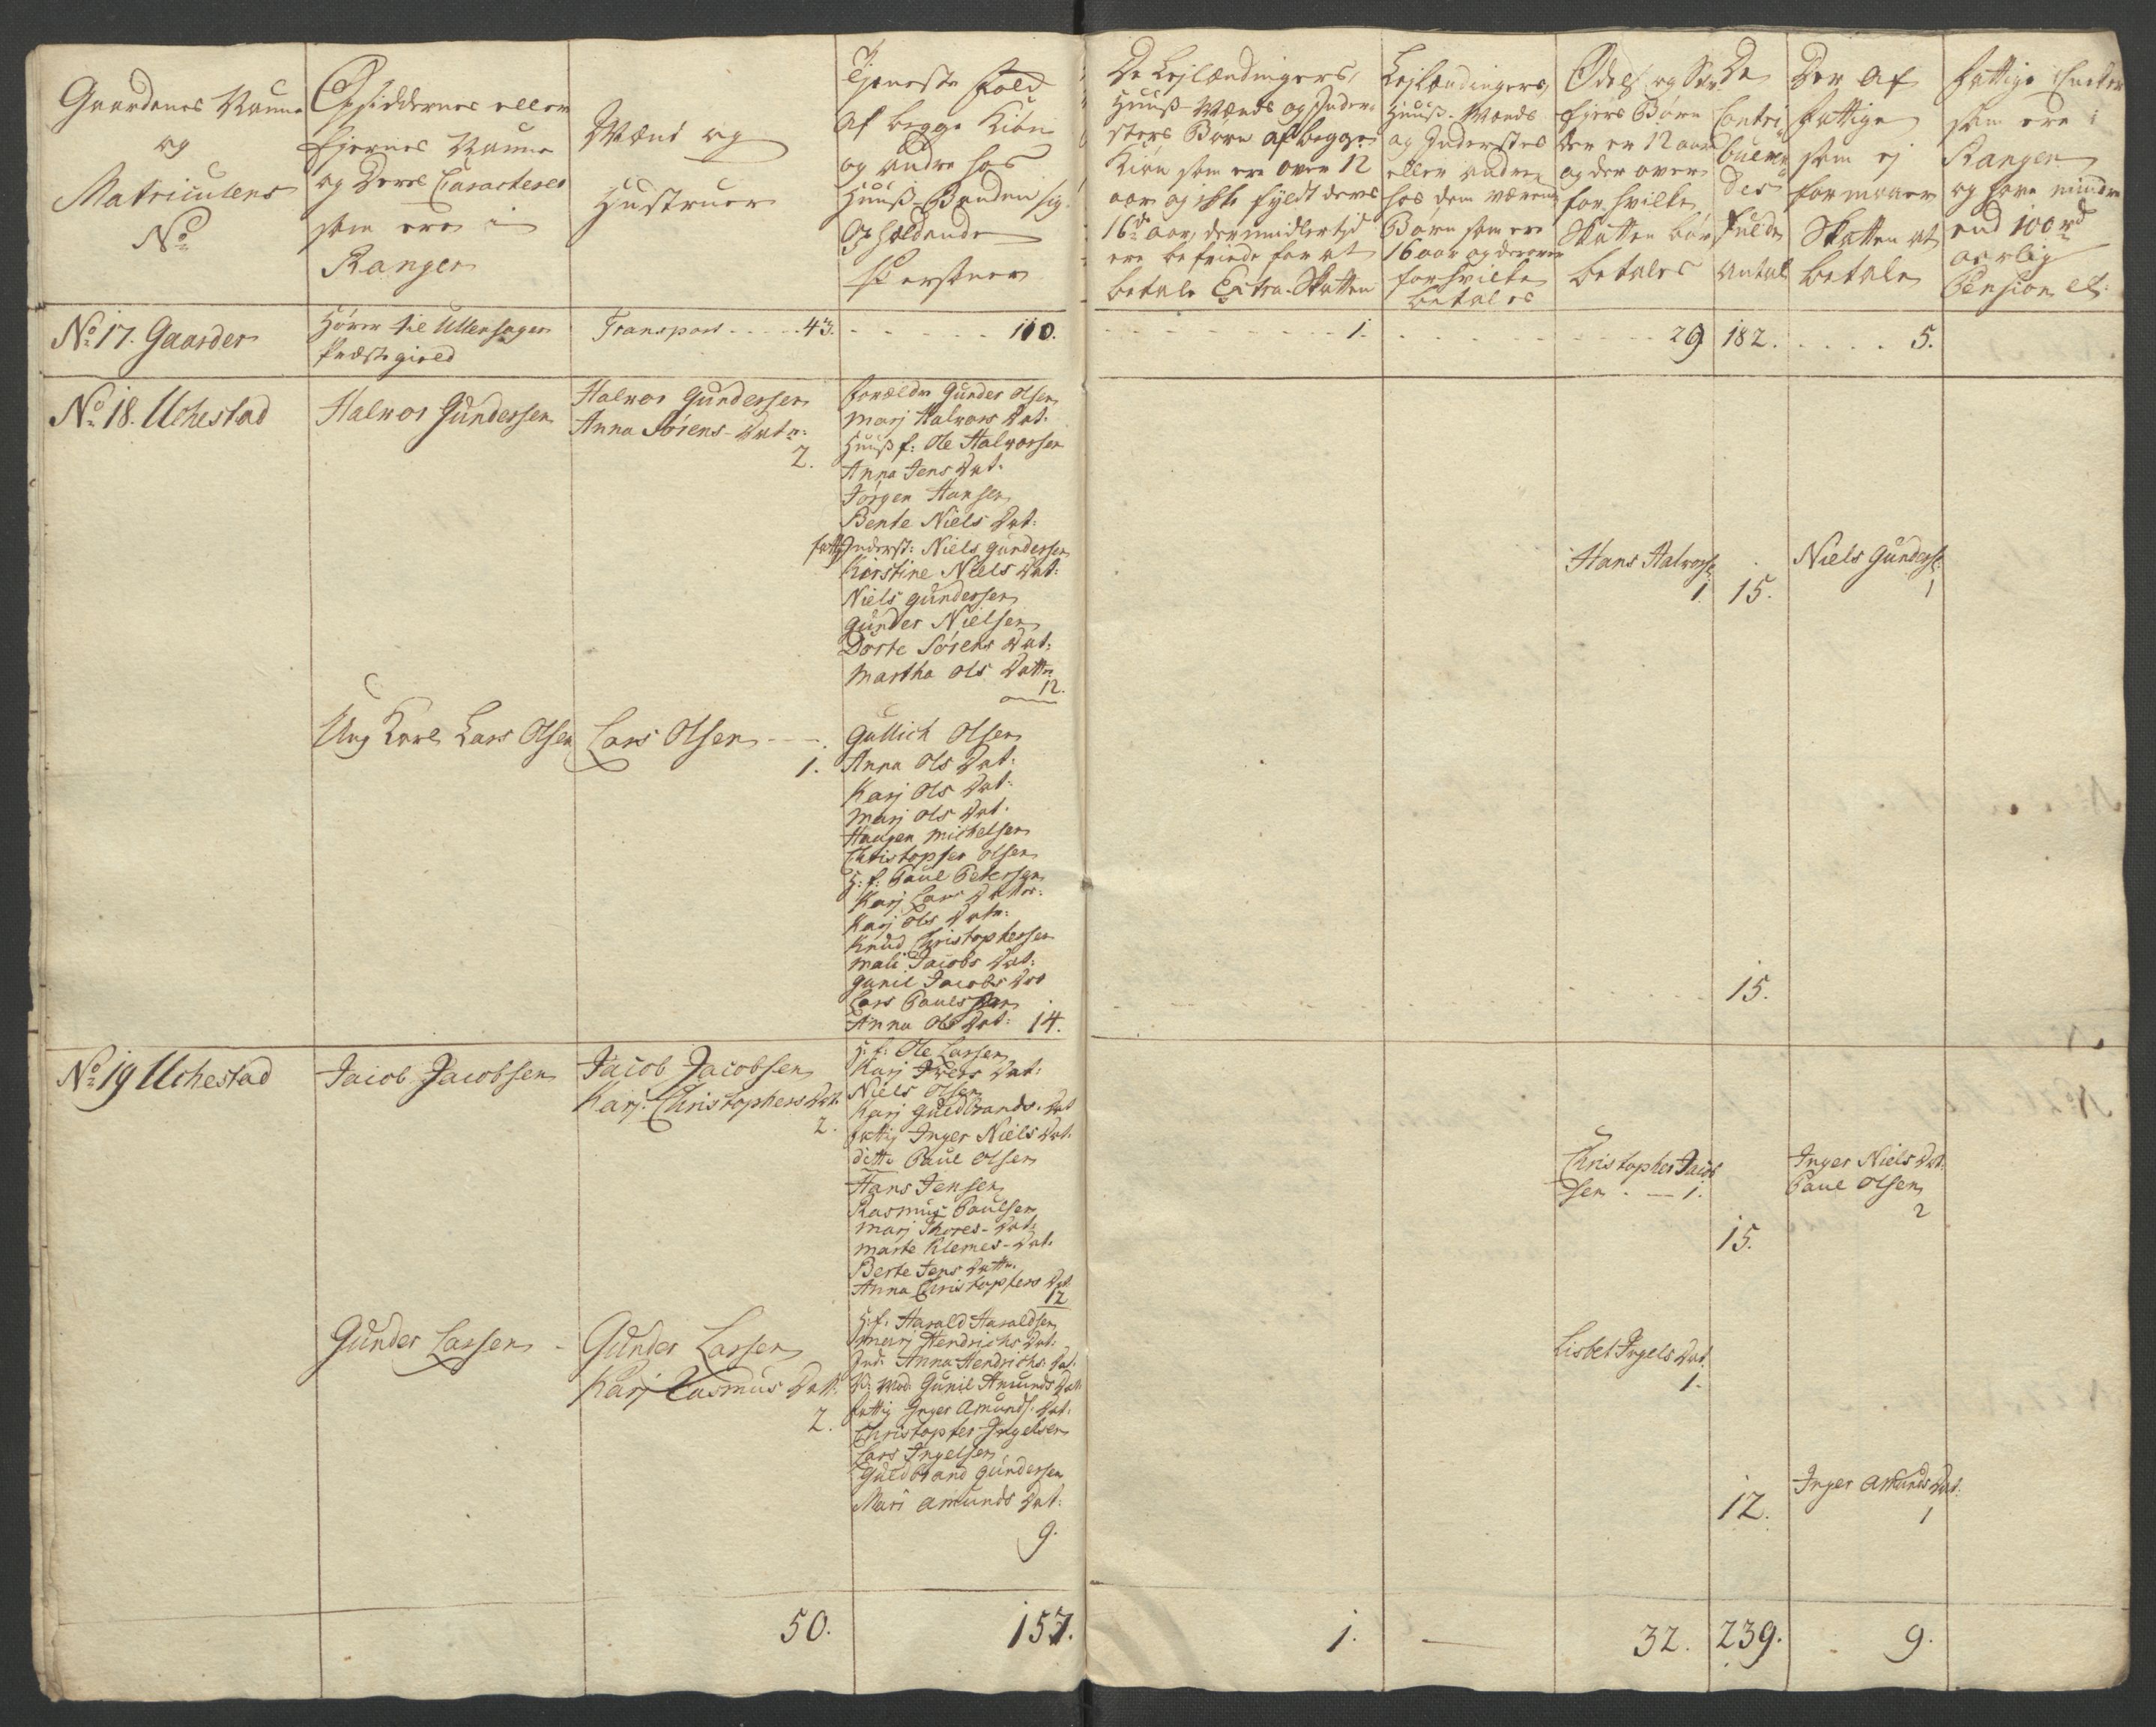 Gaardenes Navne
og
Matriculens
No
Opsiddernes eller
Ejernes Navne
og Deres Caracterer
som ere i
Rangen
Mænd og
Hustruer
Tjeneste Folk
af begge Kiøn
og andre hos
Huus-Bonden sig
Opholdende
Personer
De Lejlændingers,
Huus-Mænds og Inder-
sters Børn af begge
Kiøn som ere over 12
aar og ikke fyldt deres
16de aar, der imidlertid
ere befriede for at
betale Extra-Skatten
Lejlændingers,
Huus-Mænds
og Indersters
eller andre
hos dem værende
Børn som ere
16 aar og derover
for hvilke
betales
Odels og
Ejers Børn
der er 12 aar
og der over
for hvilke
Skatten bør
betales
De
Contri-
bueren-
des
fulde
Antal
Der af
fattige
som ej
formaaer
Skatten at
betale
fattige Enker
som ere i
Rangen
og have mindre
end 100 rd
aarlig
Pension
No 17. Gaarder
Hører til Ullensager
Præstegield
Transport 43. 110. 1. 29 182. 5.
No 18. Uchestad
Halvor Gundersen
Halvor Gundersen
Anna Sørens-Datr:
2.
Forældre Gunder Olsen
Marj Halvors Dat:
Huusf: Ole Halvorsen
Anna Jens Dat:
Jørgen Hansen
Bente Niels Dat:
fattig Inderst: Niels Gundersen
Kirstine Niels Dat:
Niels Gundersen
Gunder Nielsen
Dorte Sørens Dat:
Martha Ols Dattr
12.
Hans Halvors:
1. 15.
Niels Gunders:
1
Ung Karl Lars Olsen
Lars Olsen
1.
Gullich Olsen
Anna Ols Dat:
Karj Ols Dat:
Marj Ols Dat:
Haagen Michelsen
Christopher Olsen
H: f: Paul Petersen
Karj Lars Datr:
Karj Ols Datr:
Knud Christophersen
Mali Jacobs Dat:
Gunil Jacobs Dat
Lars Paulsen
Anna Ols Dat: 14.
15.
No 19 Uchestad
Jacob Jacobsen
Jacob Jacobsen
Karj Christophers Dat.
2.
H: f: Ole Larsen
Karj Ivers Dat:
Niels Olsen
Karj Guldbrands. Dat
fattig Inger Niels Dat.
ditto Paul Olsen
Hans Jensen
Rasmus Paulsen
Marj Thores-Dat:
Marte Klemes-Dat.
Berte Jens Dattr.
Anna Christophers Dat
12
Christopher Jacob
sen 1.
15.
Inger Niels Dat.
Paul Olsen
2
Gunder Larsen
Gunder Larsen
Karj Rasmus Datr.
2.
H: f: Harald Haraldsen
Marj Hendrichs Dat:
Ind: Anna Hendrichs: Dat:
Mod: Gunil Amunds Dat
fattig Inger Amunds: Dat:
Christopher Ingelsen
Lars Ingelsen
Guldbrand Gundersen
Mari Amunds Dat:
9.
Lisbet Ingels Dat
1.
12.
Inger Amunds Dat:
1
50. 157. 1. — 32. 239. 9.